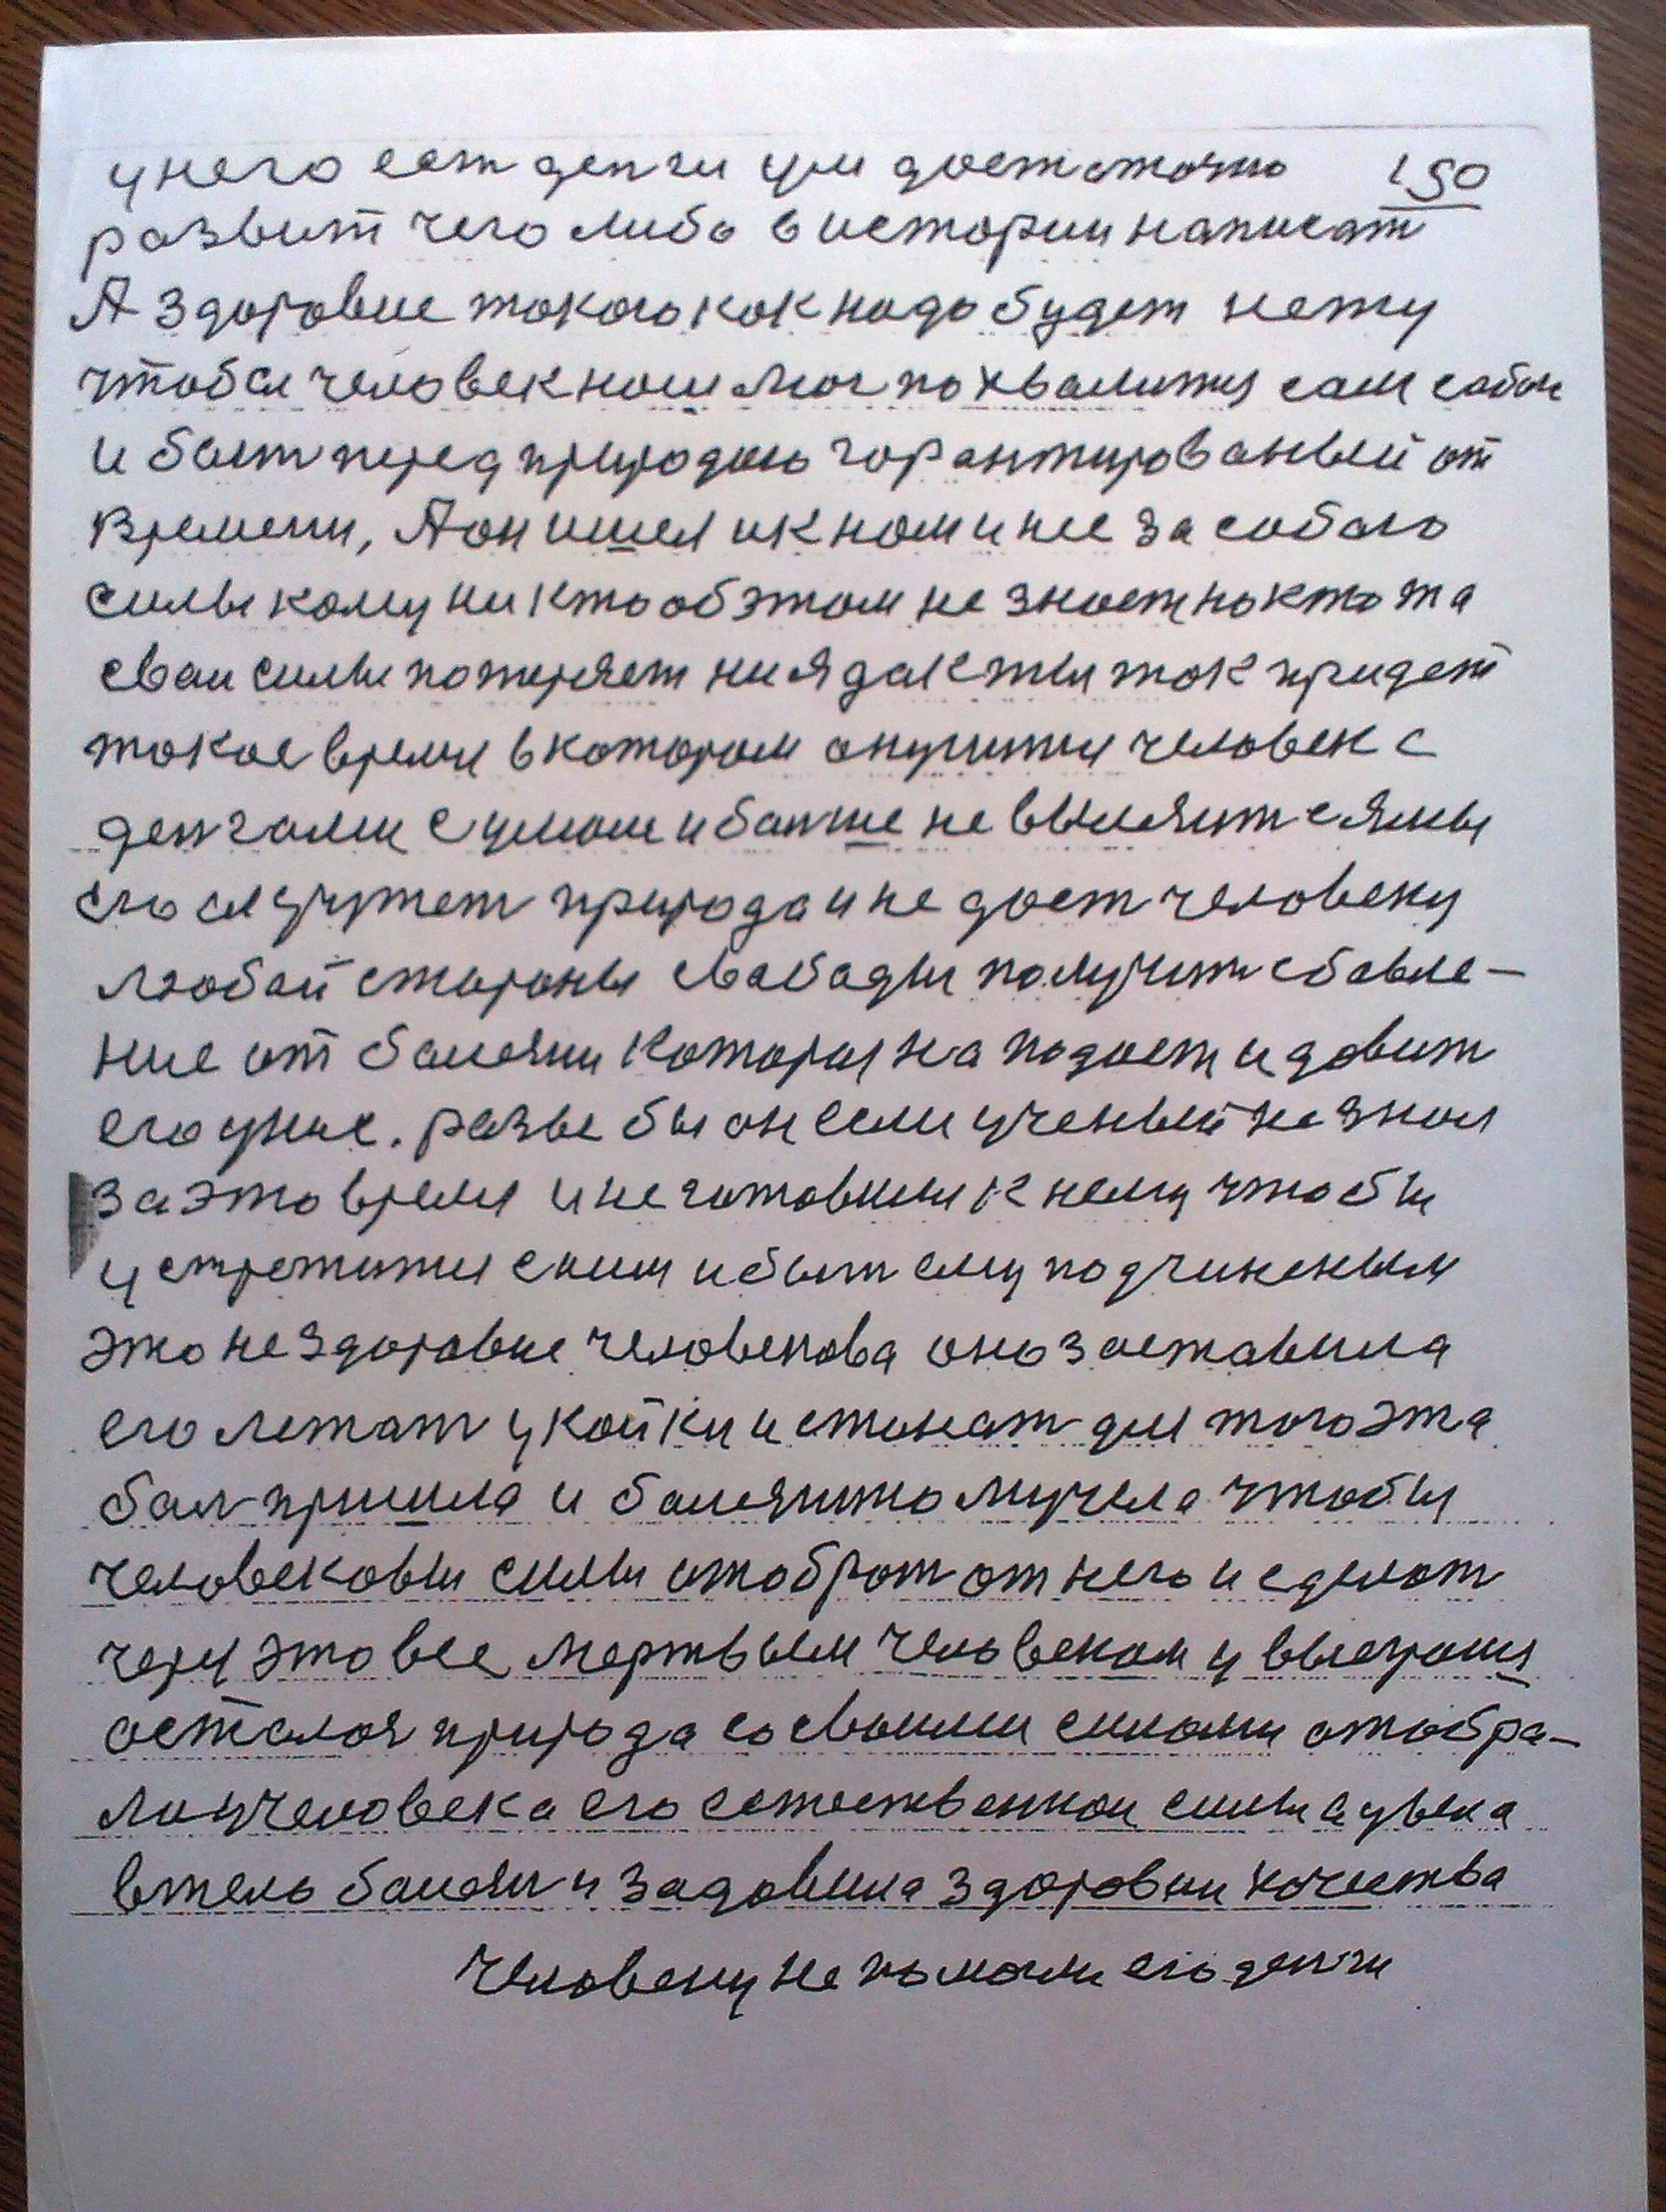 у него ест денги ум достаточно 150
развит чего либо в истории написат
А здоровие такого как надо будет нету
чтобы человек нош мог похвалится сам собои
и бытт перед природою гарантированый от
времени, А он ишел ик ном и нее за собою
силы кому никто об этом не знает но кто эта
сваи силы потеряет ни я да к ты так придет
такое время в котором очутится человек с
денгами с умом и болше не вылязит с ямы
его окружет природа и не даст человеку
любой стороны свабады получит сбавле-
ние от болезни которая наподает и довит
его уние. разве бы он если ученый не знал
за это время и не готовилы к нему чтобы
устретится с ним и быт ему подчиненым
это не здоровие человекова оно заставила
его лежат у койки и стонат для того эта
бол пришла и болезнито мучела чтобы
человековы силы отобрат от него и сделат
через это все мертвым человеком у выеграша
осталася природа со своими силами отобра-
ла у человека его естественои силы а увела
в тело болезн и задовила здоровии качества
Человеку не помагли его денги